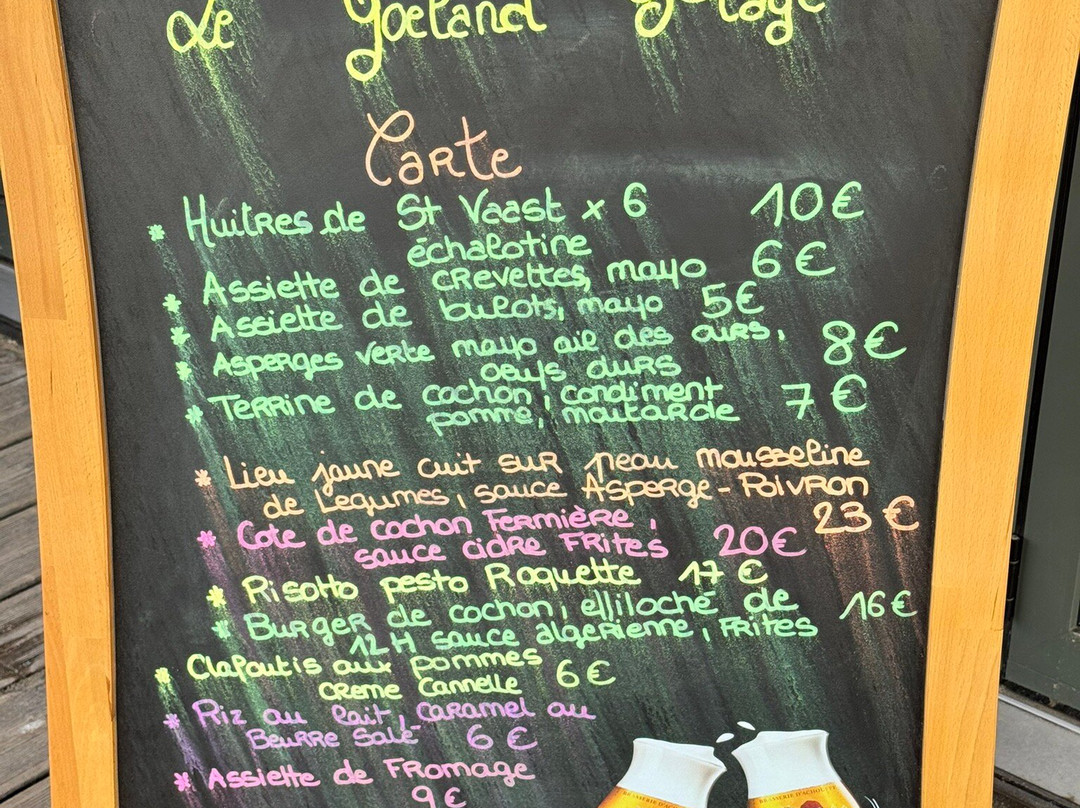 Le Goeland
Carte
* Huitres de St Vaast x 6 10€
échalotine
* Assiette de crevettes, mayo 6€
* Assiette de bulots, mayo 5€
* Asperges verte mayo ail des ours, 8€
oeufs durs
* Terrine de cochon, condiment 7€
pomme, moutarde
* Lieu jaune cuit sur peau mousseline
de Legumes, sauce Asperge-Poivron
23€
* Cote de cochon Fermière,
sauce cidre Frites 20€
* Risotto pesto Roquette 17€
* Burger de cochon, effiloché de 16€
12H sauce algerienne, Frites
* Clafoutis aux pommes
creme Cannelle 6€
* Riz au lait, caramel au
Beurre Salé 6€
* Assiette de Fromage
9€
BRASSERIE D'ACHOUFFE